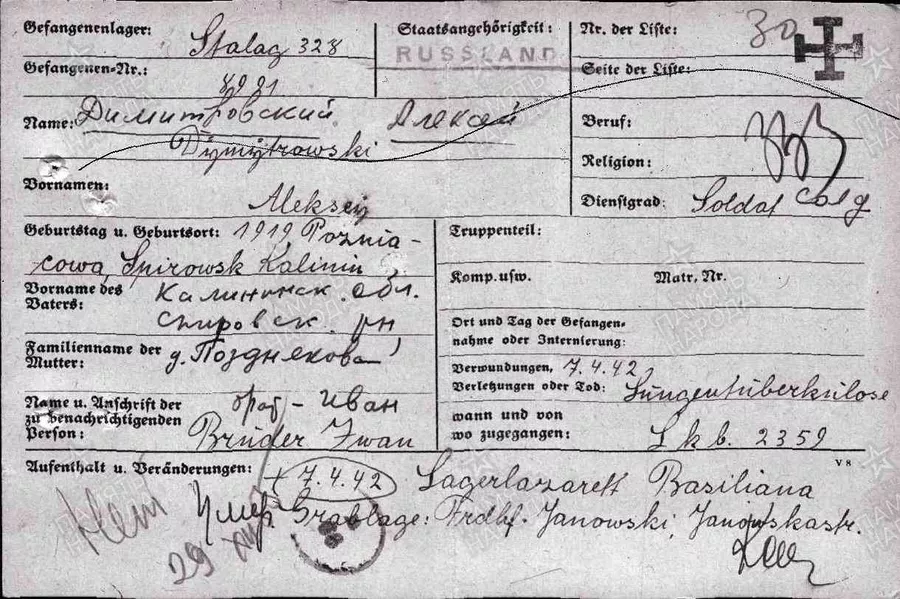 Gefangenenlager: Stalag 328
Staatsangehörigkeit: RUSSLAND
Nr. der Liste: 30
Gefangenen-Nr.:
Seite der Liste:
Name: Димитровский Алексей
Dymytrowski
Beruf:
Religion:
Vornamen: Aleksey
Dienstgrad: Soldat
Geburtstag u. Geburtsort: 1919 Poznia-
cowa, Spirowsk Kalinin
Truppenteil:
Komp. usw. Matr. Nr.
Vorname des Vaters:
Калининск. обл.
Спировск. рн
Ort und Tag der Gefangen-
nahme oder Internierung:
Familienname der Mutter:
д. Позднякова
Verwundungen, 7.4.42,
Verletzungen oder Tod: Lungentuberkulose
Name u. Anschrift der
zu benachrichtigenden
Person:
брат - Иван
Bruder Iwan
wann und von
wo zugegangen: Lkb. 2359
Aufenthalt u. Veränderungen: + 7.4.42 Lagerlazarett Basiliana
V 8
Умер Grablage: Frdhf. Janowski, Janowskastr.
Нет
29
ПАМЯТЬ НАРОДА